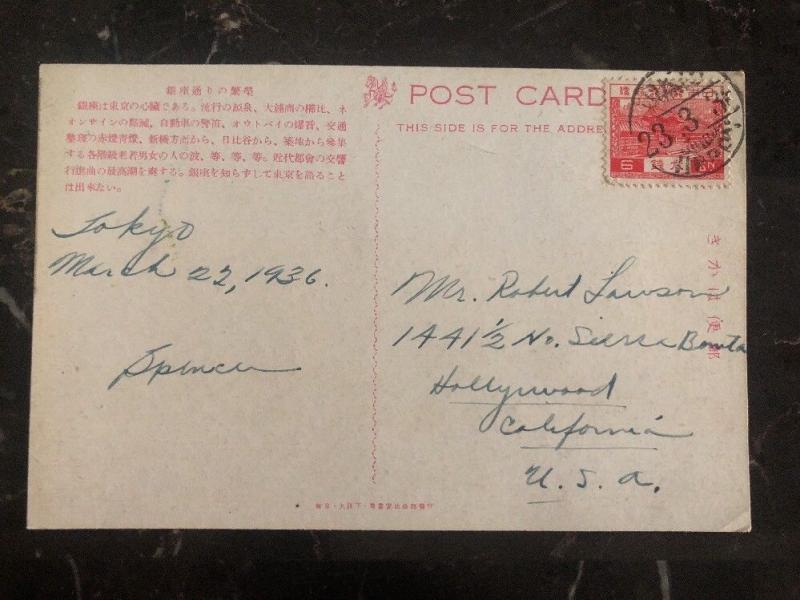 銀座通りの繁榮
銀座は東京の心臓である。流行の源泉、大鋪商の櫛比、ネ
オンサインの點滅、自動車の警笛、オウトバイの爆音、交通
整理の赤燈青燈、新橋方面から、日比谷から、築地から參集
する各階級老若男女の人の波、等、等、等。近代都會の交響
行進曲の最高潮を奏する。銀座を知らずして東京を語ること
は出來ない。
Tokyo
March 22, 1936.
Spencer
POST CARD
THIS SIDE IS FOR THE ADDRE
23
3
6
きかは便郵
Mr. Robert Lawson
1441 1/2 No. Sierra Bonita
Hollywood
California
U. S. A.